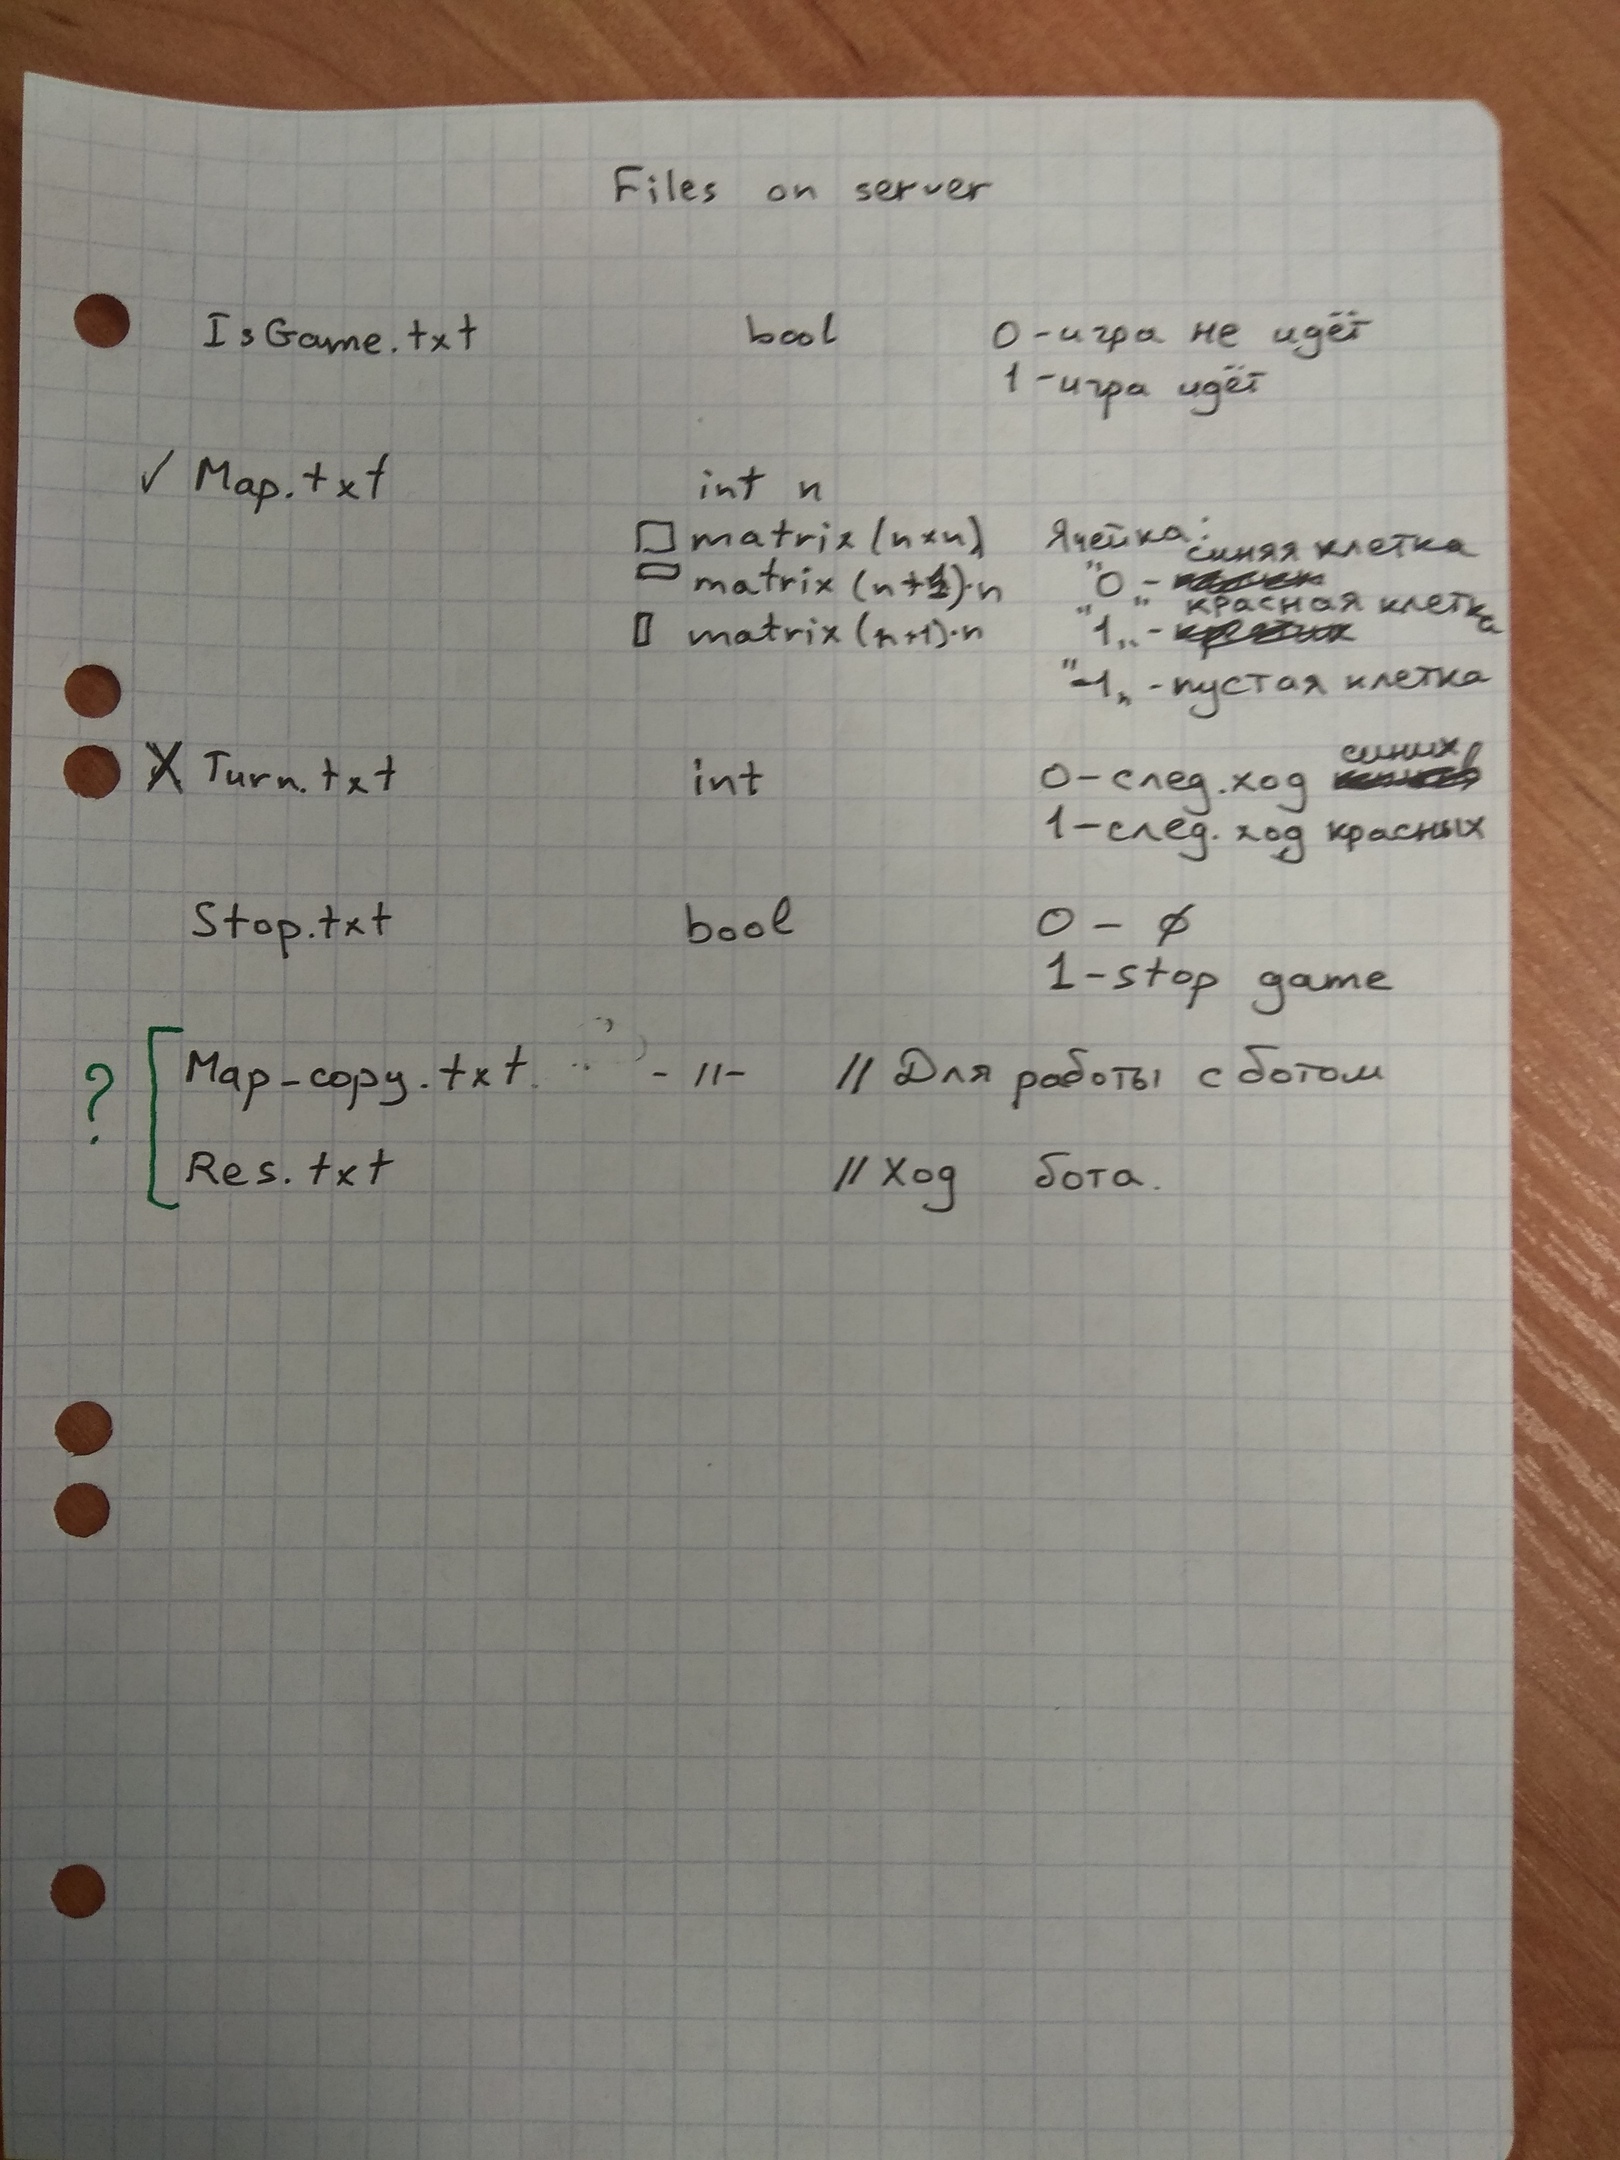 Files on server
IsGame.txt bool 0 - игра не идёт
1 - игра идёт
✓ Map.txt int n
▭ matrix (n×n) Ячейка: синяя клетка
▭ matrix (n+1)·n "0 -
красная клетка
▯ matrix (n+1)·n "1„ -
"-1„ - пустая клетка
X Turn.txt int 0 - след. ход синих
1 - след. ход красных
Stop.txt bool 0 - ∅
1 - stop game
? [ Map-copy.txt - 11 - // Для работы с ботом
Res.txt // Ход бота.